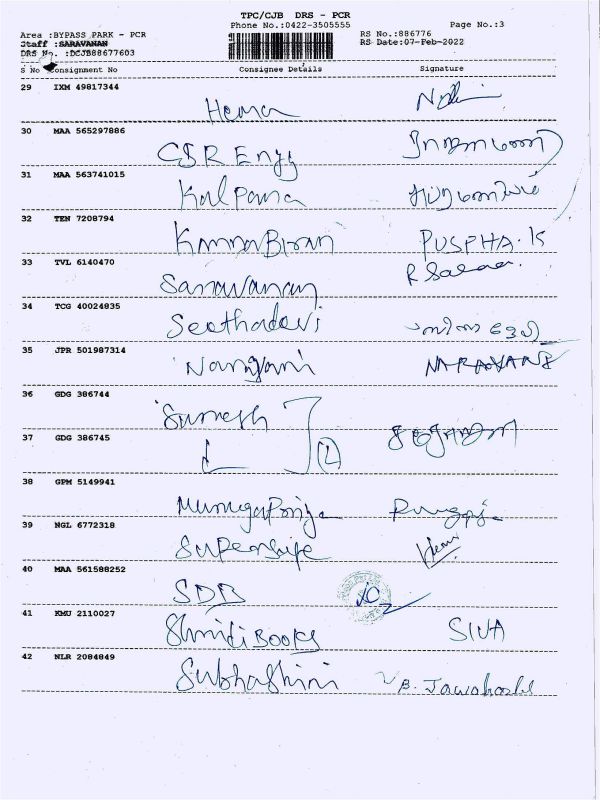 TPC/CJB DRS - PCR
Phone No.:0422-3505555
Page No.:3
Area :BYPASS PARK - PCR
RS No.:886776
Staff :SARAVANAN
RS Date:07-Feb-2022
DRS No. :DCJB88677603
S No Consignment No Consignee Details Signature
29 IXM 49817344
Hema
30 MAA 565297886
CSR Engg
31 MAA 563741015
Kalpana
32 TEN 7208794
KannaBiran PUSPHA.K
33 TVL 6140470
Saravanan
34 TCG 40024835
Seethadevi
35 JPR 501987314
Narayani NARAYANI
36 GDG 386744
Suresh
37 GDG 386745
38 GPM 5149941
MurugaPriya
39 NGL 6772318
40 MAA 561588252
SDB
41 KMU 2110027
Shruti Books SIVA
42 NLR 2084849
Subhashini